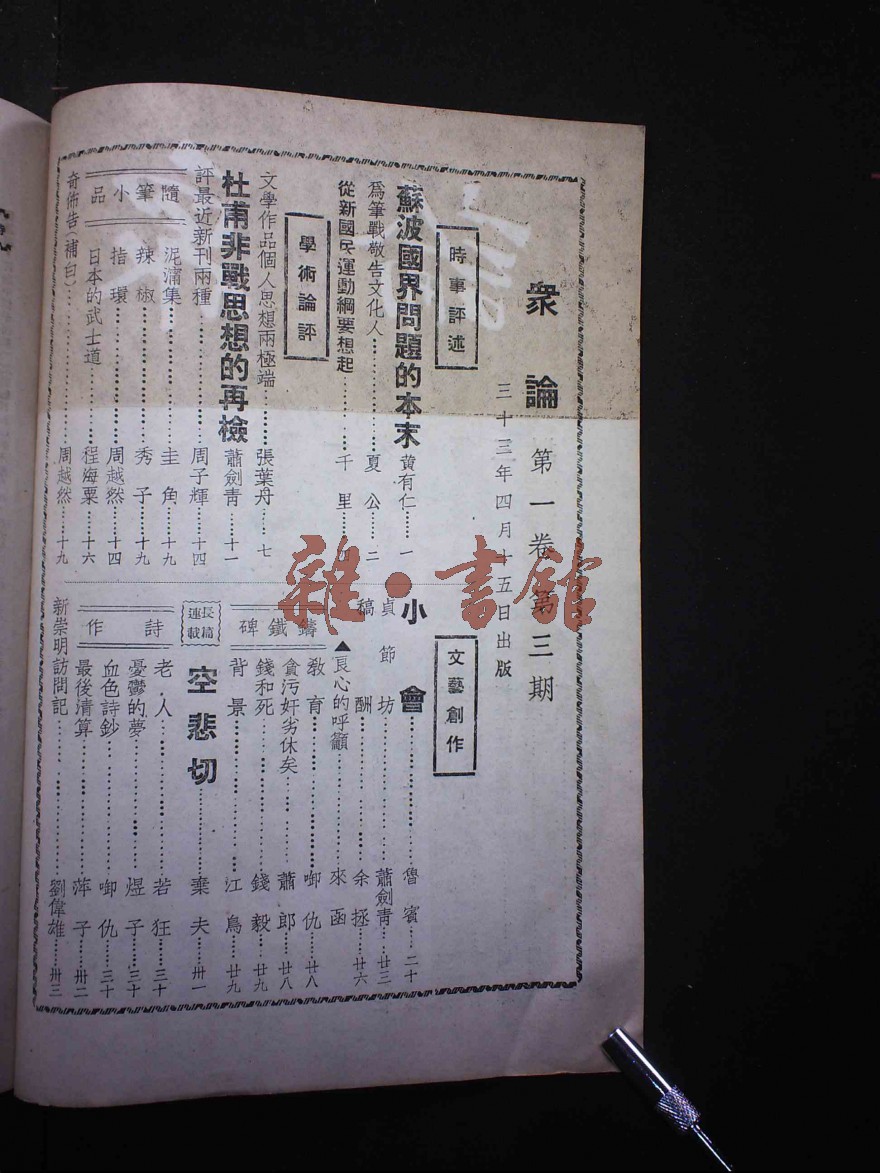 衆論 第一卷 第三期
三十三年四月十五日出版
時事評述
蘇波國界問題的本末 黄有仁……一
爲筆戰敬告文化人……夏公……二
從新國民運動綱要想起……千里……四
學術論評
文學作品個人思想兩極端……張葉舟……七
杜甫非戰思想的再檢 蕭劍靑……十一
評最近新刊兩種……周子輝……十四
隨筆小品
泥濤集……圭角……十九
辣椒……秀子……十九
指環……周越然……十四
日本的武士道……程海粟……十六
奇佈告(補白)……周越然……十九
文藝創作
小會……魯賓……二十
貞節坊……蕭劍靑……廿三
稿酬……余拯……廿六
▲良心的呼籲……來函
鑄鐵碑
敎育……啣仇……廿八
貪污奸劣休矣……蕭郎……廿八
錢和死……錢毅……廿九
背景……江鳥……廿九
長篇連載
空悲切……棄夫……卅一
詩作
老人……若狂……三十
憂鬱的夢……煜子……三十
血色詩鈔……啣仇……三十
最後清算……萍子……卅二
新崇明訪問記……劉偉雄……卅三
雜·書館